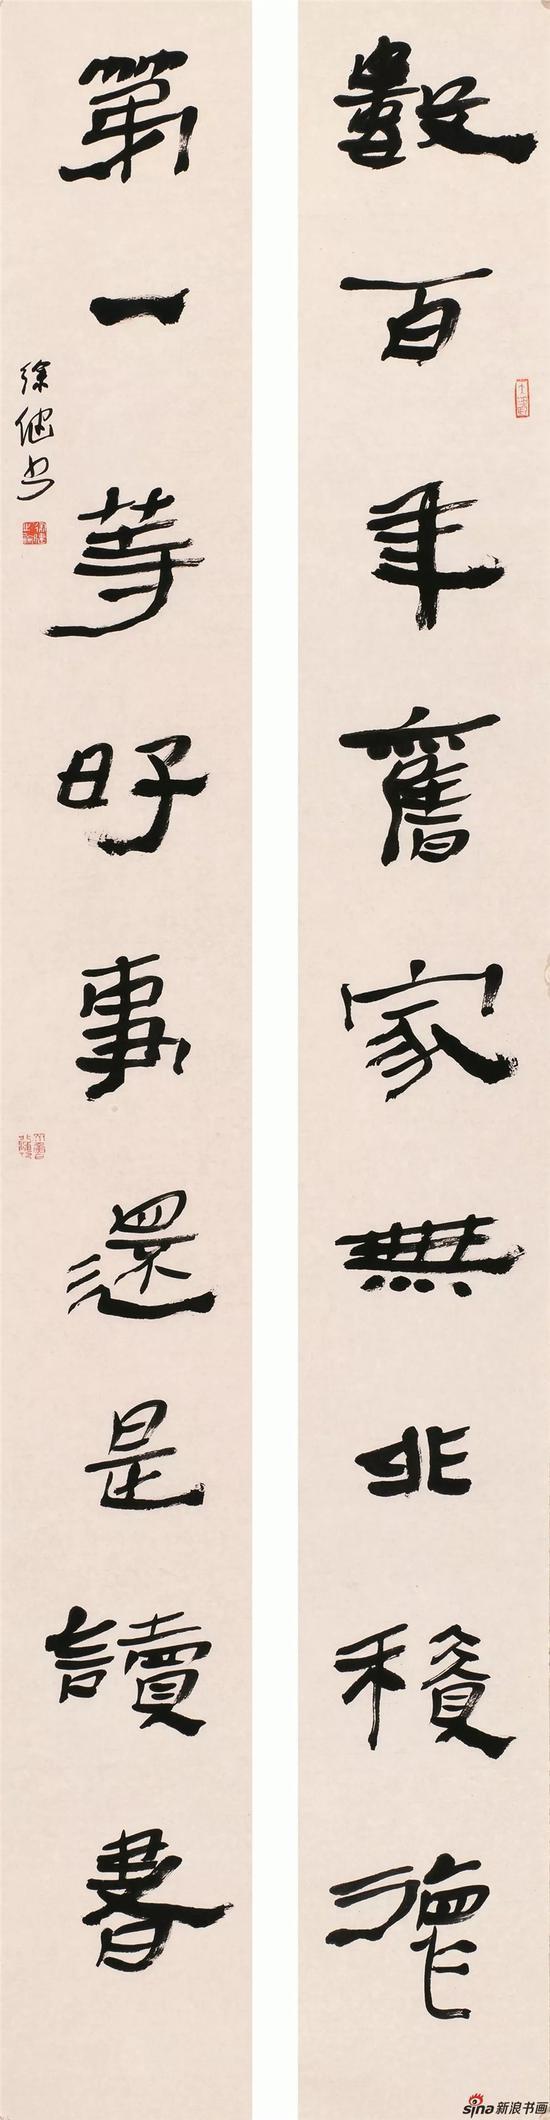 數百年舊家無非積德
第一等好事還是讀書
徐健书
sina新浪书画